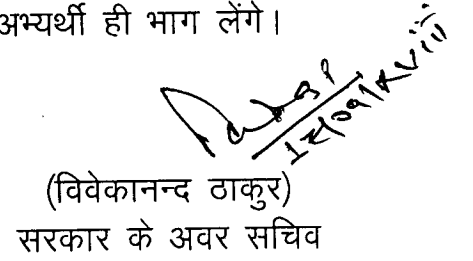 अभ्यर्थी ही भाग लेंगे।
(विवेकानन्द ठाकुर)
सरकार के अवर सचिव